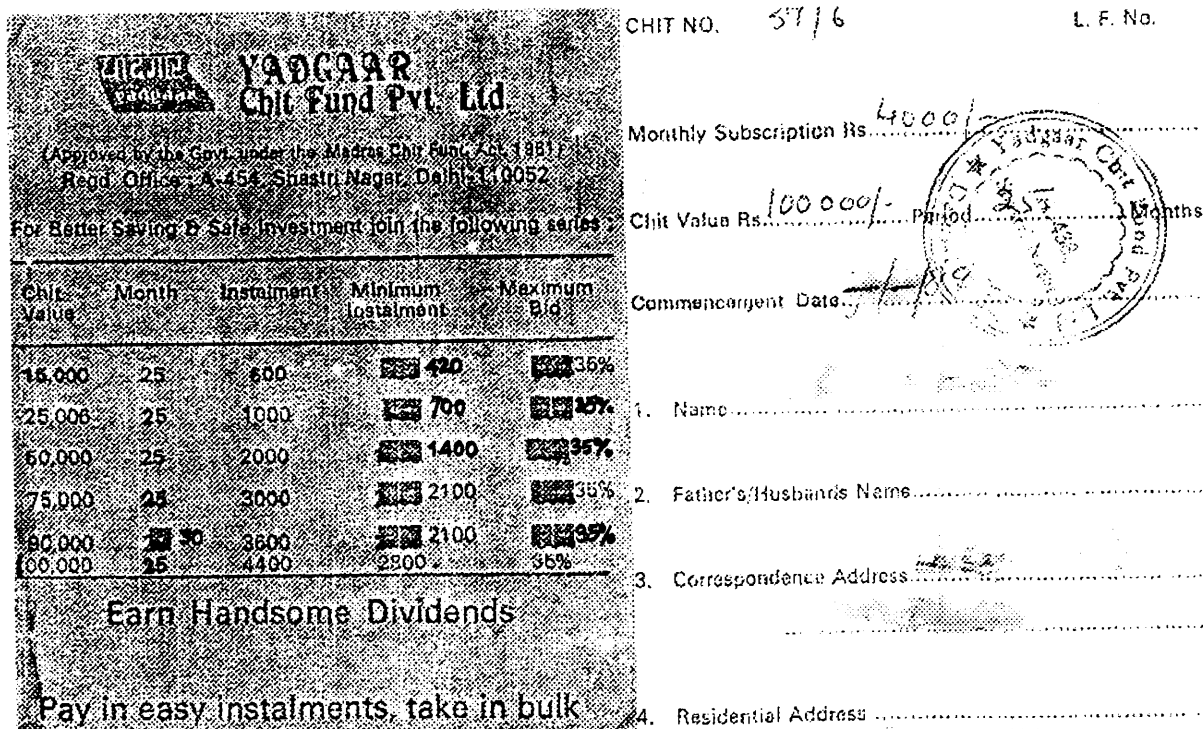 यादगार
YADGAAR
YADGAAR
Chit Fund Pvt. Ltd.
(Approved by the Govt. under the Madras Chit Fund Act, 1961)
Regd. Office : A-454, Shastri Nagar, Delhi-110052
For Better Saving & Safe Investment join the following series :
Chit Value Month Instalment Minimum Instalment Maximum Bid
15,000 25 600 420 35%
25,000 25 1000 700 35%
50,000 25 2000 1400 35%
75,000 25 3000 2100 35%
90,000 30 3600 2100 35%
00,000 25 4400 2800 35%
Earn Handsome Dividends
Pay in easy instalments, take in bulk
CHIT NO. 57/6 L. F. No.
Monthly Subscription Rs. 4000/-
Chit Value Rs. 100000/- Period 25 Months
Commencement Date
Yadgaar Chit Fund Pvt. Ltd.
1. Name
2. Father's/Husband's Name
3. Correspondence Address
4. Residential Address